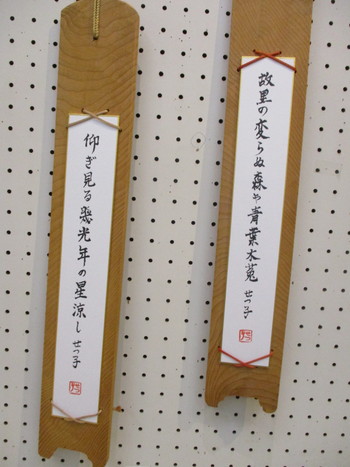 故里の変らぬ森や青葉木菟 せつ子
仰ぎ見る幾光年の星涼し せつ子